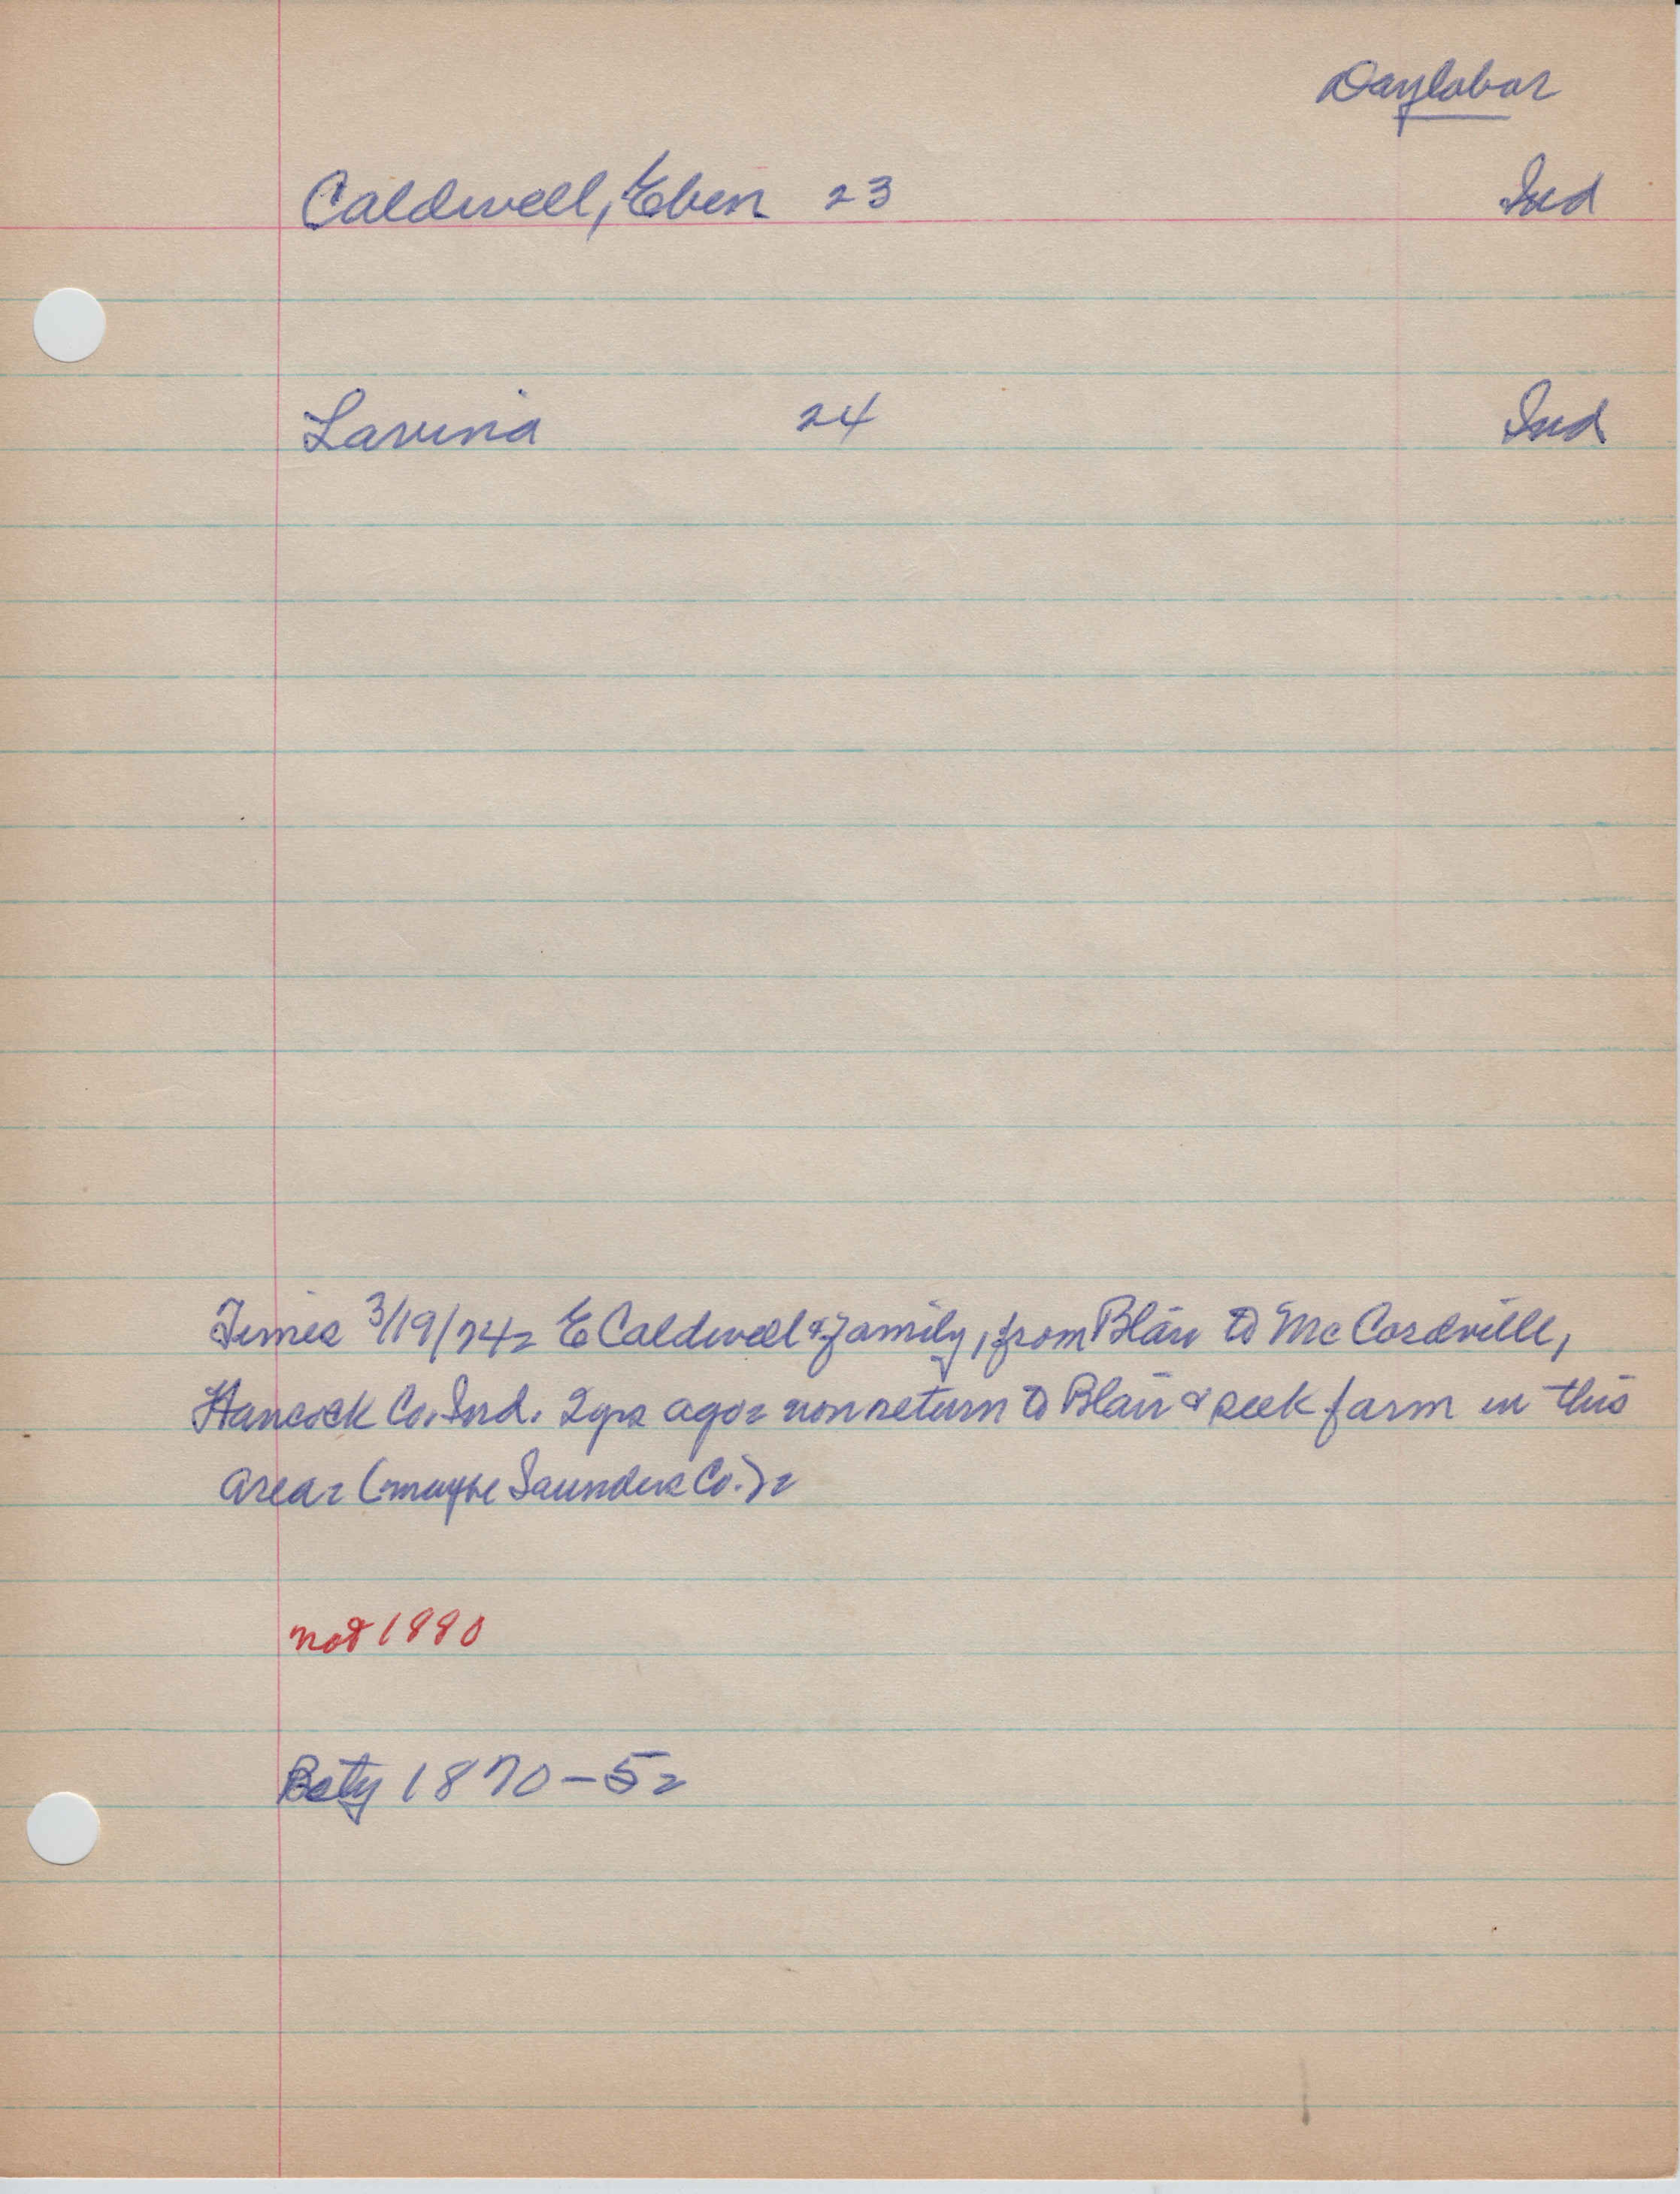 Daylabor
Caldwell, Eben 23 Ind
Lavina 24 Ind
Times 3/19/74= E Caldwell & family, from Blair to McCordville,
Hancock Co. Ind. 2 yrs ago= return to Blair & seek farm in this
area= (maybe Saunders Co.)=
not 1880
1870-5=